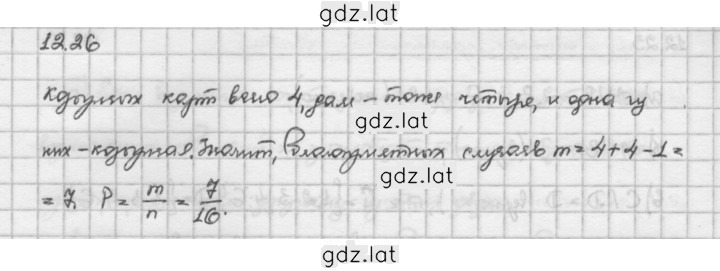 gdz.lat
12.26
gdz.lat
козырных карт всего 4, дам – тоже четыре, и одна из
gdz.lat
них – козырная. Значит, благоприятных случаев m = 4 + 4 - 1 =
= 7. P = m/n = 7/16.
gdz.lat
gdz.lat